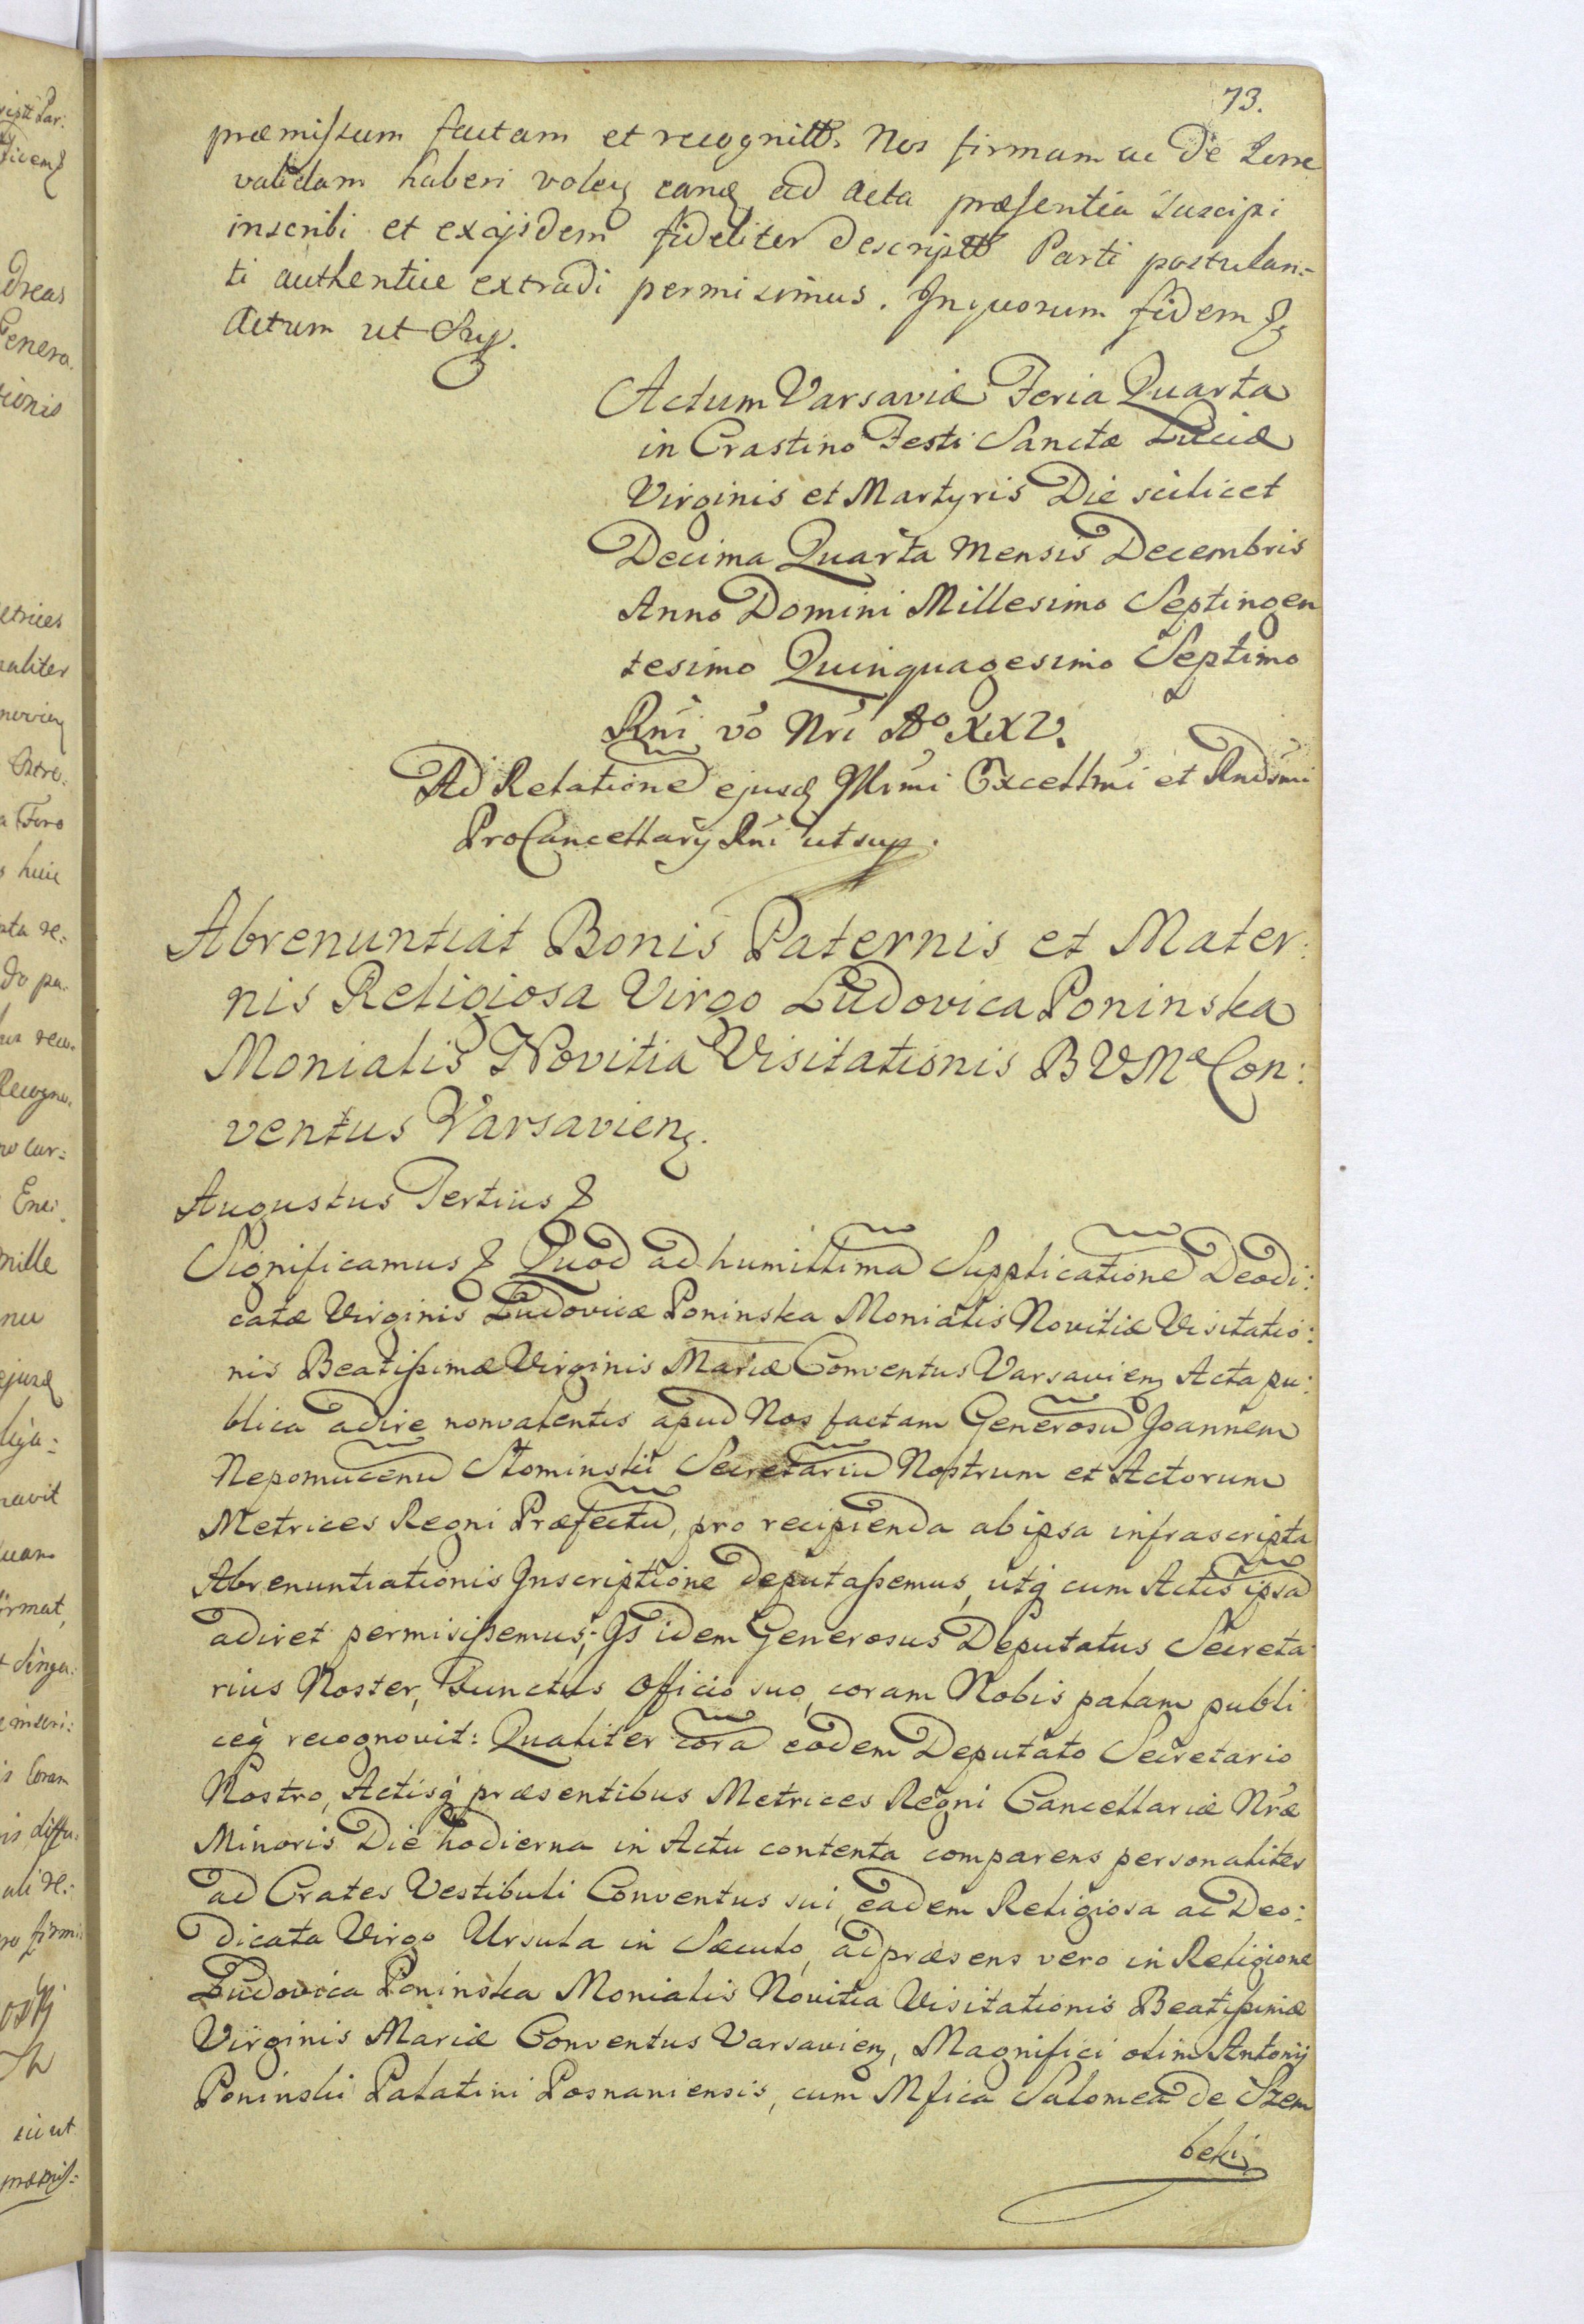 73.
præmissum factam et recognitt. Nos firmam ac de Jure
validam haberi voleñ eandem ad Acta præsentia suscipi
inscribi et ex ijsdem fideliter descriptt Parti postulan=
ti authentice extradi permisimus. In quorum fidem &
Actum ut Sup.
Actum Varsaviæ Feria Quarta
in Crastino Festi Sanctæ Luciæ
Virginis et Martyris Die scilicet
Decima Quarta Mensis Decembris
Anno Domini Millesimo Septingen
tesimo Quinquagesimo Septimo
Rñi vō Nri Aº XXV.
Ad Relatione ejusd Illrmi Excellmi et Rndsmi
ProCancellarij Rñi ut sup.
Abrenuntiat Bonis Paternis et Mater:
nis Religiosa Virgo Ludovica Poninska
Monialis Novitia Visitationis B V Mæ Con:
ventus Varsavieñ.
Augustus Tertius &
Significamus & Quod ad humillimā Supplicationē Deodi:
catæ Virginis Ludovicæ Poninska Monialis Novitiæ Visitatio:
nis Beatissimæ Virginis Mariæ Conventus Varsavieñ Acta pu:
blica adire non valentis apud Nos factam Generosū Joannem
Nepomucenū Slominski Secretariū Nostrum et Actorum
Metrices Regni Præfectū, pro recipienda ab ipsa infrascripta
Abrenuntiationis Inscriptione deputassemus, utq cum Actis ipsā
adiret permisissemus; Is idem Generosus Deputatus Secreta
rius Noster, functus Officio suo, coram Nobis palam publi
ceq recognovit: Qualiter corā eodem Deputato Secretario
Nostro, Actisq præsentibus Metrices Regni Cancellariæ Nræ
Minoris Die hodierna in Actu contenta comparens personaliter
ad Crates Vestibuli Conventus sui, eadem Religiosa ac Deo:
dicata Virgo Ursula in Sæculo, ad præsens vero in Religione
Ludovica Poninska Monialis Novitia Visitationis Beatissimæ
Virginis Mariæ Conventus Varsavieñ, Magnifici olim Antonij
Poninski Palatini Posnaniensis, cum Mfica Salomea de Szem
beki